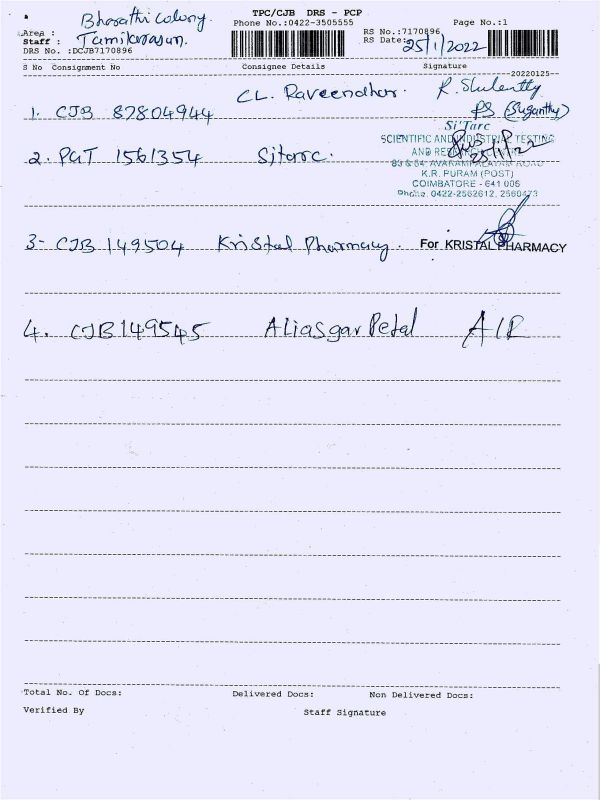 TPC/CJB DRS - PCP
Phone No.:0422-3505555
Page No.:1
Area : Bharathi Colony.
Staff : Tamilarasan.
DRS No. :DCJB7170896
RS No.:7170896
RS Date: 25/1/2022
S No Consignment No Consignee Details Signature
20220125-
1. CJB 87804944 CL. Raveendhar.
(Suganthy)
2. PGT 1561354 Sitarc.
Si'Tarc
SCIENTIFIC AND INDUSTRIAL TESTING
AND RESEARCH CENTRE
83 & 84, AVARAMPALAYAM ROAD
K.R. PURAM (POST)
COIMBATORE - 641 006
Phone: 0422-2562612, 2560473
25/1/22
3- CJB 149504 Kristal Pharmacy. For KRISTAL PHARMACY
4. CJB149545 Aliasgar Petal
Total No. Of Docs: Delivered Docs: Non Delivered Docs:
Verified By Staff Signature